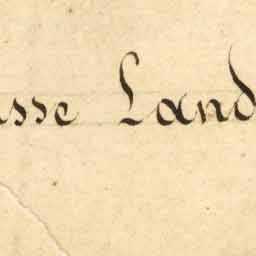 sse Land